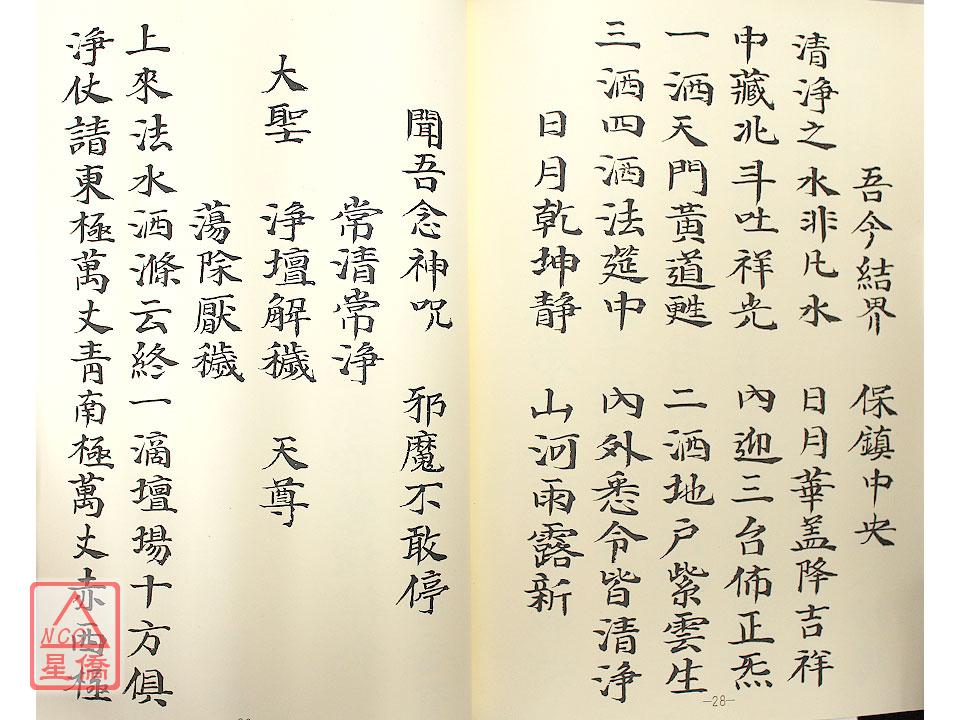 吾今結界 保鎮中央
清淨之水非凡水 日月華盖降吉祥
中藏北斗吐祥光 內迎三台佈正炁
一洒天門黃道甦 二洒地户紫雲生
三洒四洒法筵中 內外悉令皆清淨
日月乾坤静 山河雨露新
—28—
聞吾念神呪 邪魔不敢停
常清常淨
大聖 淨壇解穢 天尊
蕩除厭穢
上來法水洒滌云終一滴壇場十方俱
淨仗請東極萬丈青南極萬丈赤西極
NCC
星僑